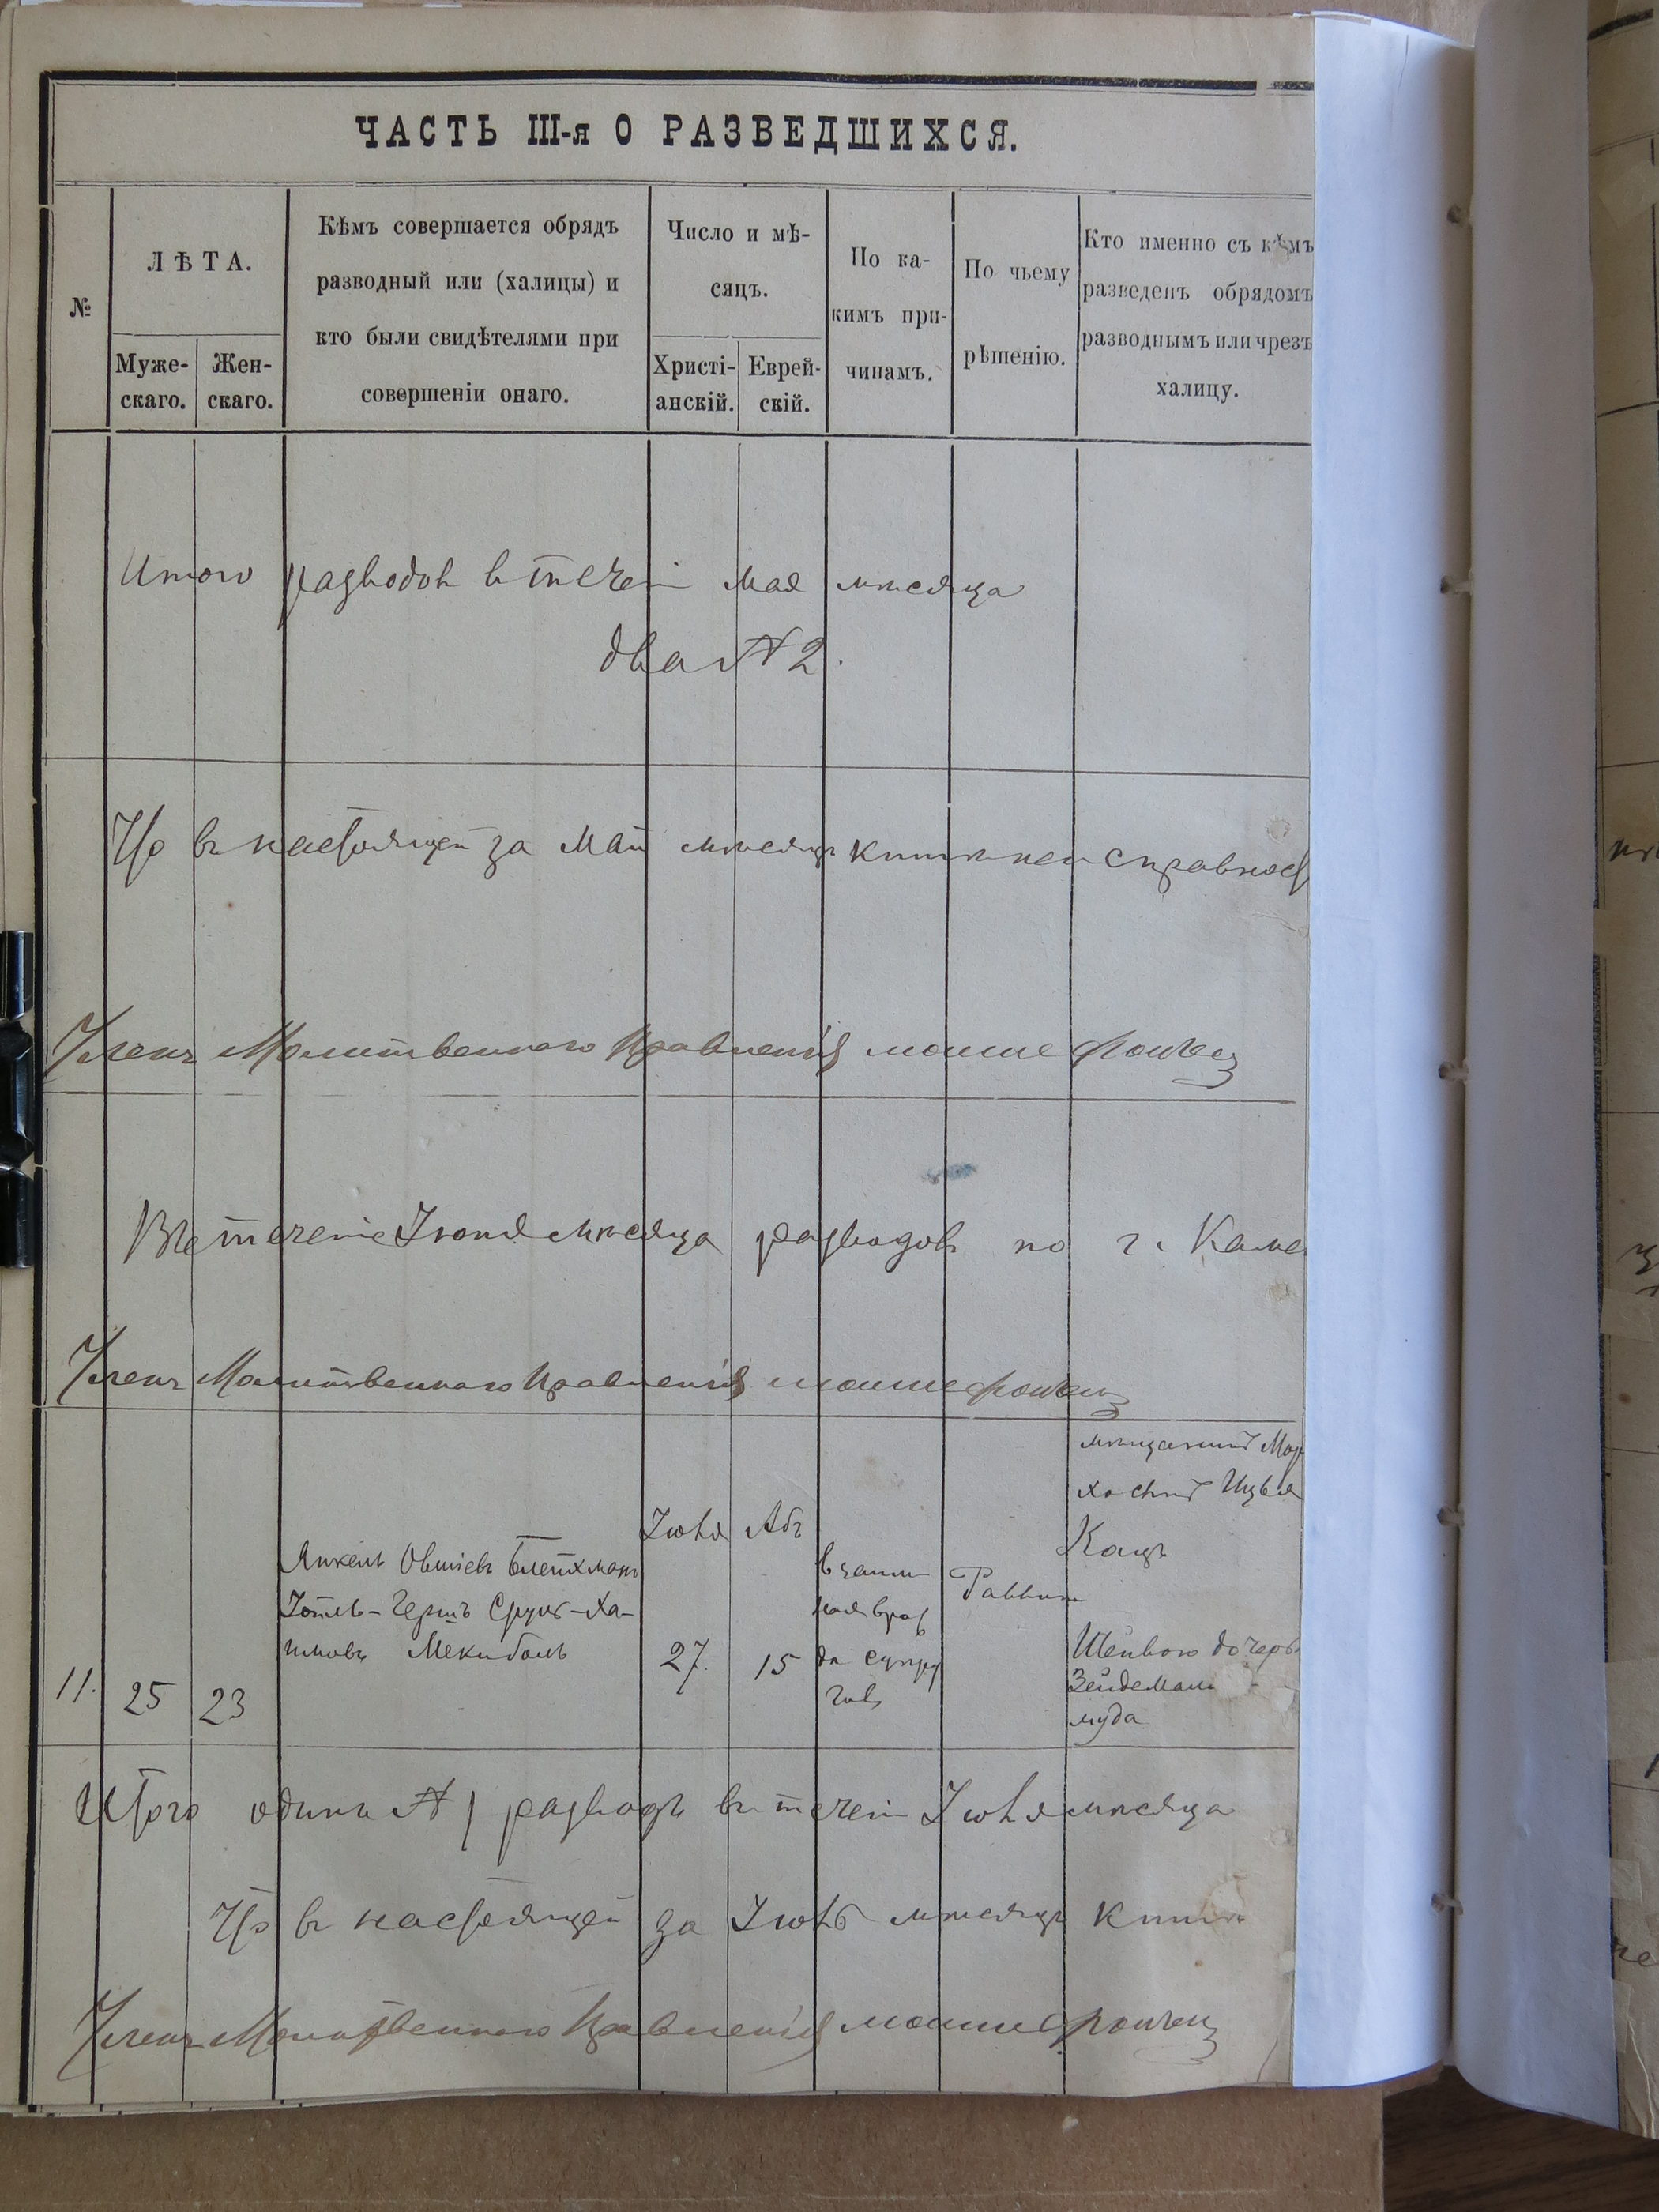 ЧАСТЬ III-я О РАЗВЕДШИХСЯ.
№
ЛѢТА.
Муже-
скаго.
Жен-
скаго.
Кѣмъ совершается обрядъ
разводный или (халицы) и
кто были свидѣтелями при
совершеніи онаго.
Число и мѣ-
сяцъ.
Христі-
анскій.
Еврей-
скій.
По ка-
кимъ при-
чинамъ.
По чьему
рѣшенію.
Кто именно съ кѣмъ
разведенъ обрядомъ
разводнымъ или чрезъ
халицу.
Итого разводовъ въ теченіи мая мѣсяца
два № 2.
Что въ настоящей за Май мѣсяцъ книгѣ неисправност
Членъ Молитвеннаго Правленія мошие
Въ теченіе Іюня мѣсяца разводовъ по г. Каме
Членъ Молитвеннаго Правленія мошие
11.
25
23
Янкель Овшіевъ Блейхманъ
Іойль-Гершъ Срулъ-Ха-
имовъ
Іюля
27.
Абъ
15
взаим-
ная враж
да супру
говъ
Раввин
мѣщанинъ Мор
Кацъ
дочерь
Итого одинъ № 1 разводъ въ теченіи Іюля мѣсяца
Что въ настоящей за Іюль мѣсяцъ книгѣ
Членъ Молитвеннаго Правленія мошие